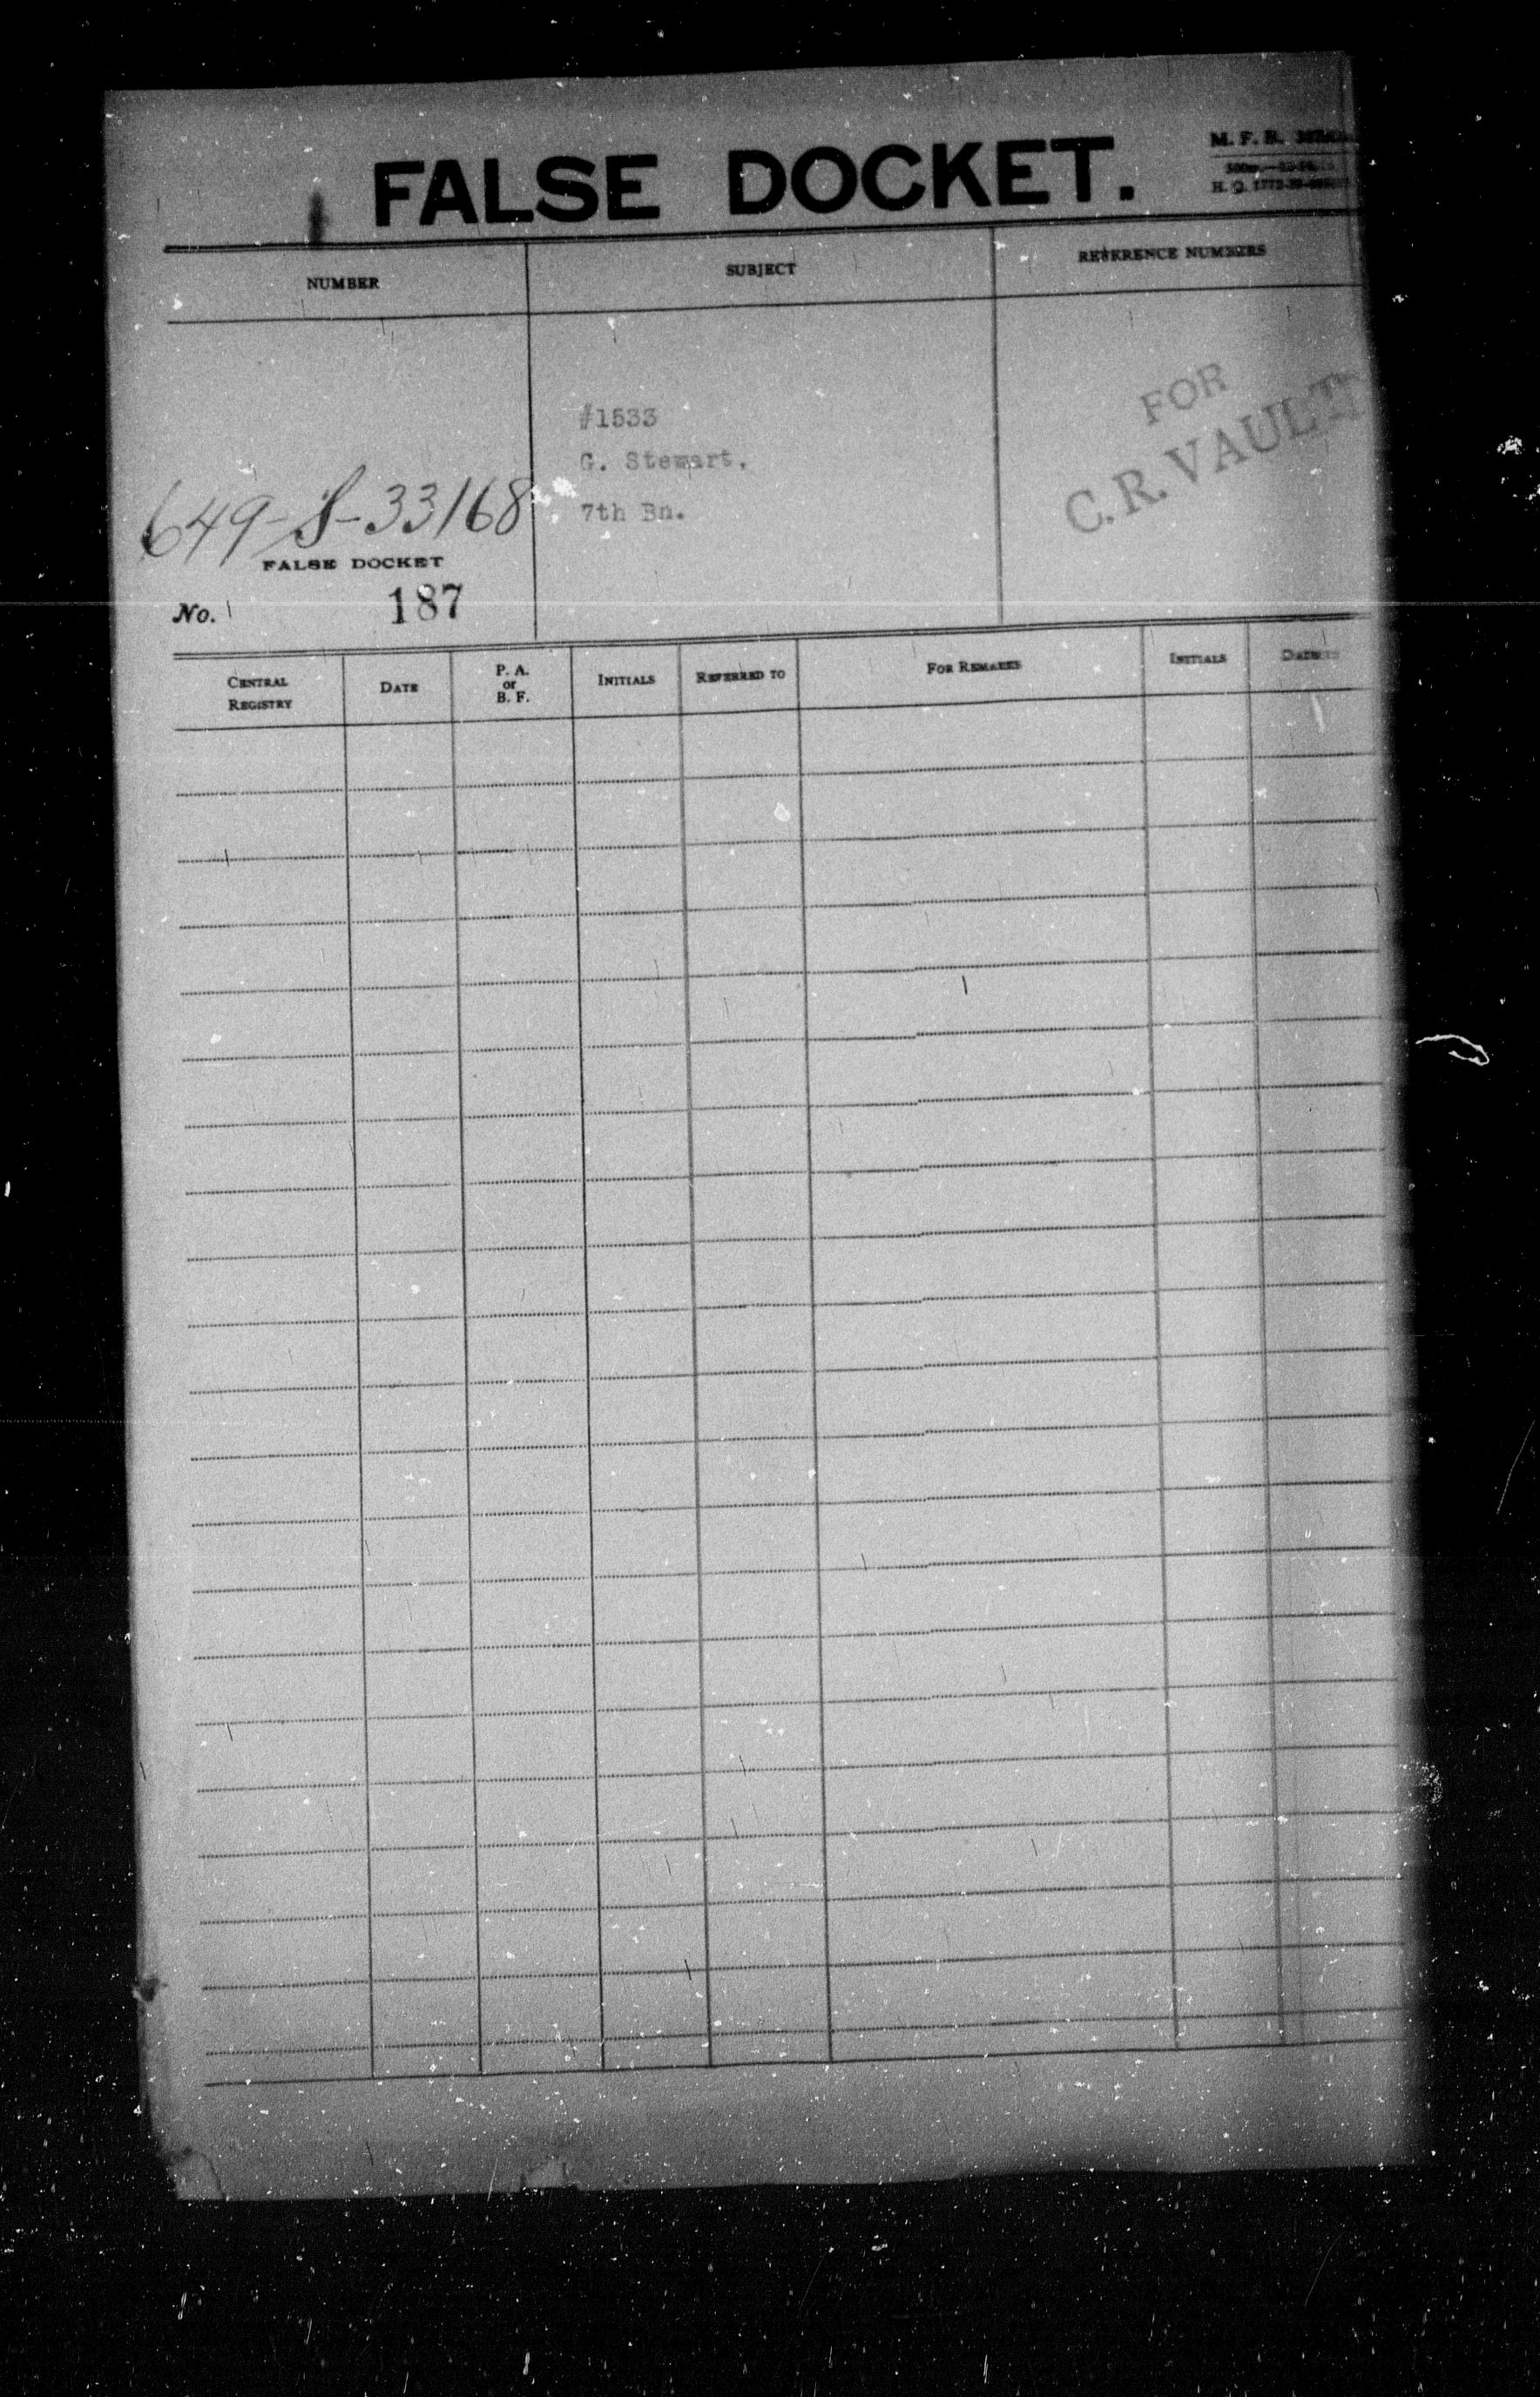 FALSE DOCKET.
M. F. B.
H. Q. 1772-39-
NUMBER
SUBJECT
REFERENCE NUMBERS
#1533
G. Stewart.
7th Bn.
FOR
C. R. VAULT
649-S-33168
FALSE DOCKET
No. 187
CENTRAL REGISTRY
DATE
P. A. or B. F.
INITIALS
REFERRED TO
FOR REMARKS
INITIALS